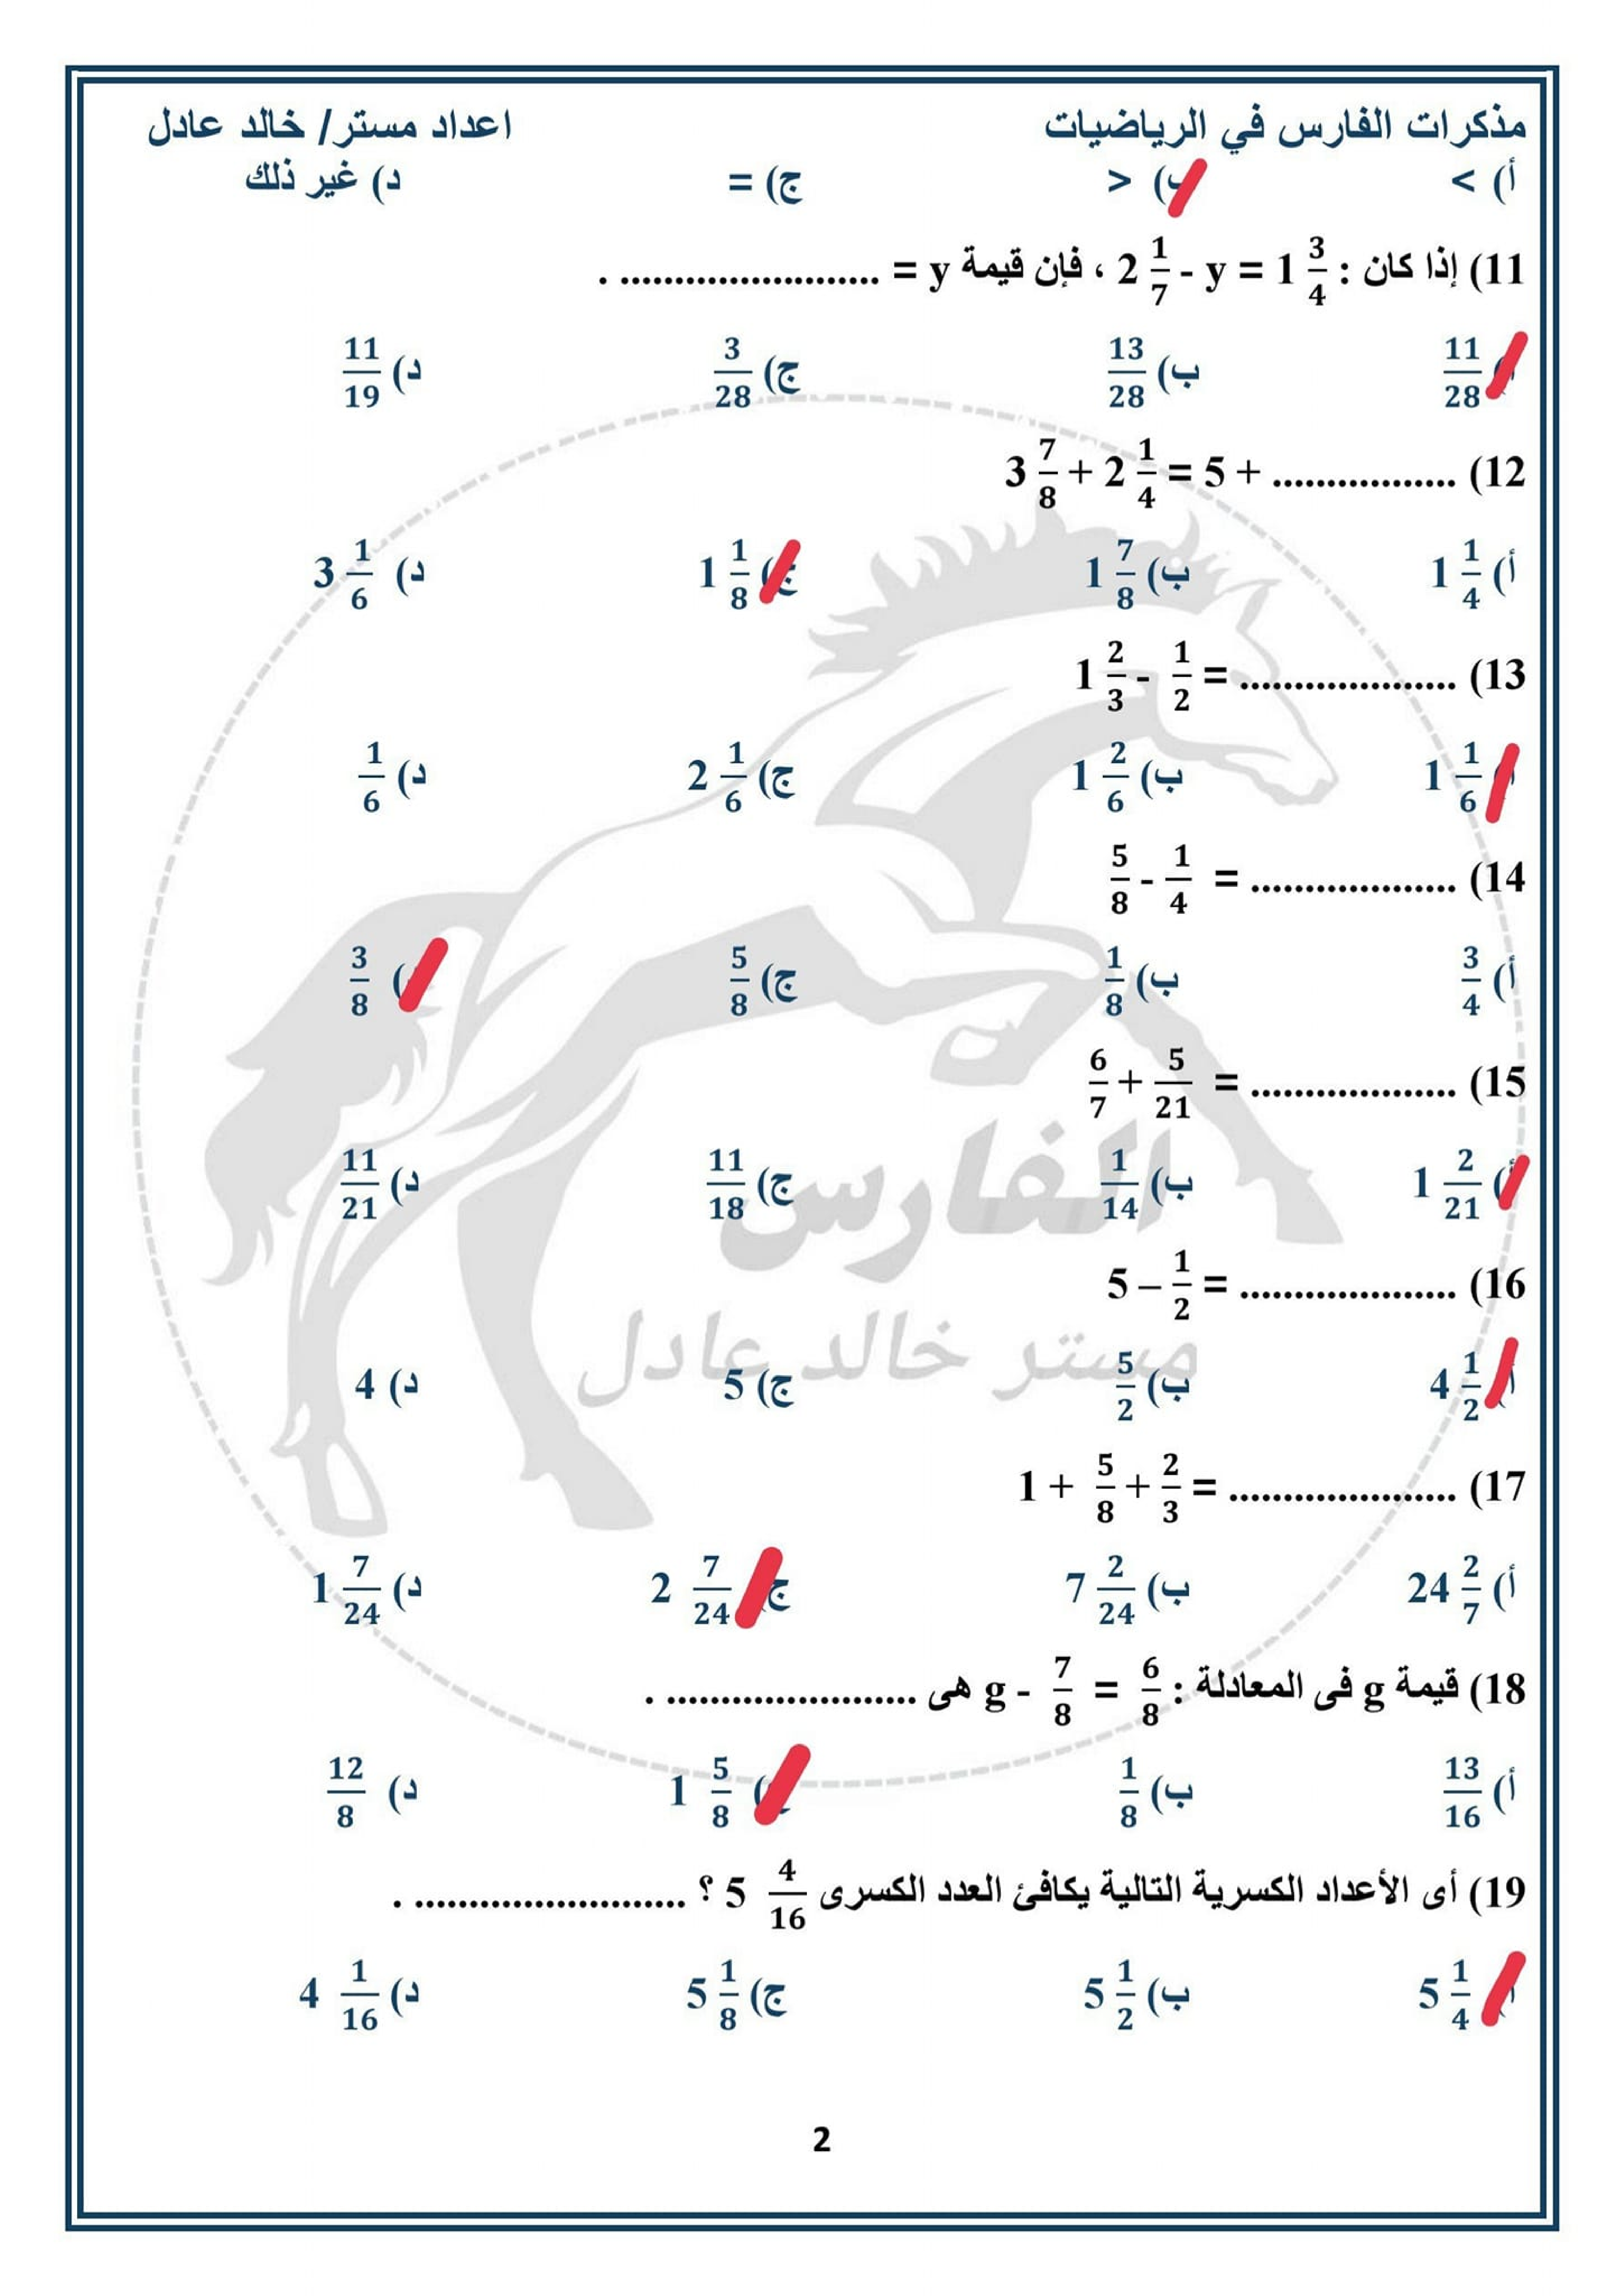 مذكرات الفارس في الرياضيات اعداد مستر/ خالد عادل
أ) > ب) < ج) = د) غير ذلك
11) إذا كان : 2 1/7 - y = 1 3/4 ، فإن قيمة y = ........................ .
أ) 11/28 ب) 13/28 ج) 3/28 د) 11/19
12) 3 7/8 + 2 1/4 = 5 + .................
أ) 1 1/4 ب) 1 7/8 ج) 1 1/8 د) 3 1/6
13) 1 2/3 - 1/2 = ....................
أ) 1 1/6 ب) 1 2/6 ج) 2 1/6 د) 1/6
14) 5/8 - 1/4 = ...................
أ) 3/4 ب) 1/8 ج) 5/8 د) 3/8
15) 6/7 + 5/21 = ...................
أ) 1 2/21 ب) 1/14 ج) 11/18 د) 11/21
الفارس
16) 5 – 1/2 = ....................
مستر خالد عادل
أ) 4 1/2 ب) 5/2 ج) 5 د) 4
17) 1 + 5/8 + 2/3 = .....................
أ) 24 2/7 ب) 7 2/24 ج) 2 7/24 د) 1 7/24
18) قيمة g فى المعادلة : g - 7/8 = 6/8 هى ....................... .
أ) 13/16 ب) 1/8 ج) 1 5/8 د) 12/8
19) أى الأعداد الكسرية التالية يكافئ العدد الكسرى 5 4/16 ؟ ......................... .
أ) 5 1/4 ب) 5 1/2 ج) 5 1/8 د) 4 1/16
2